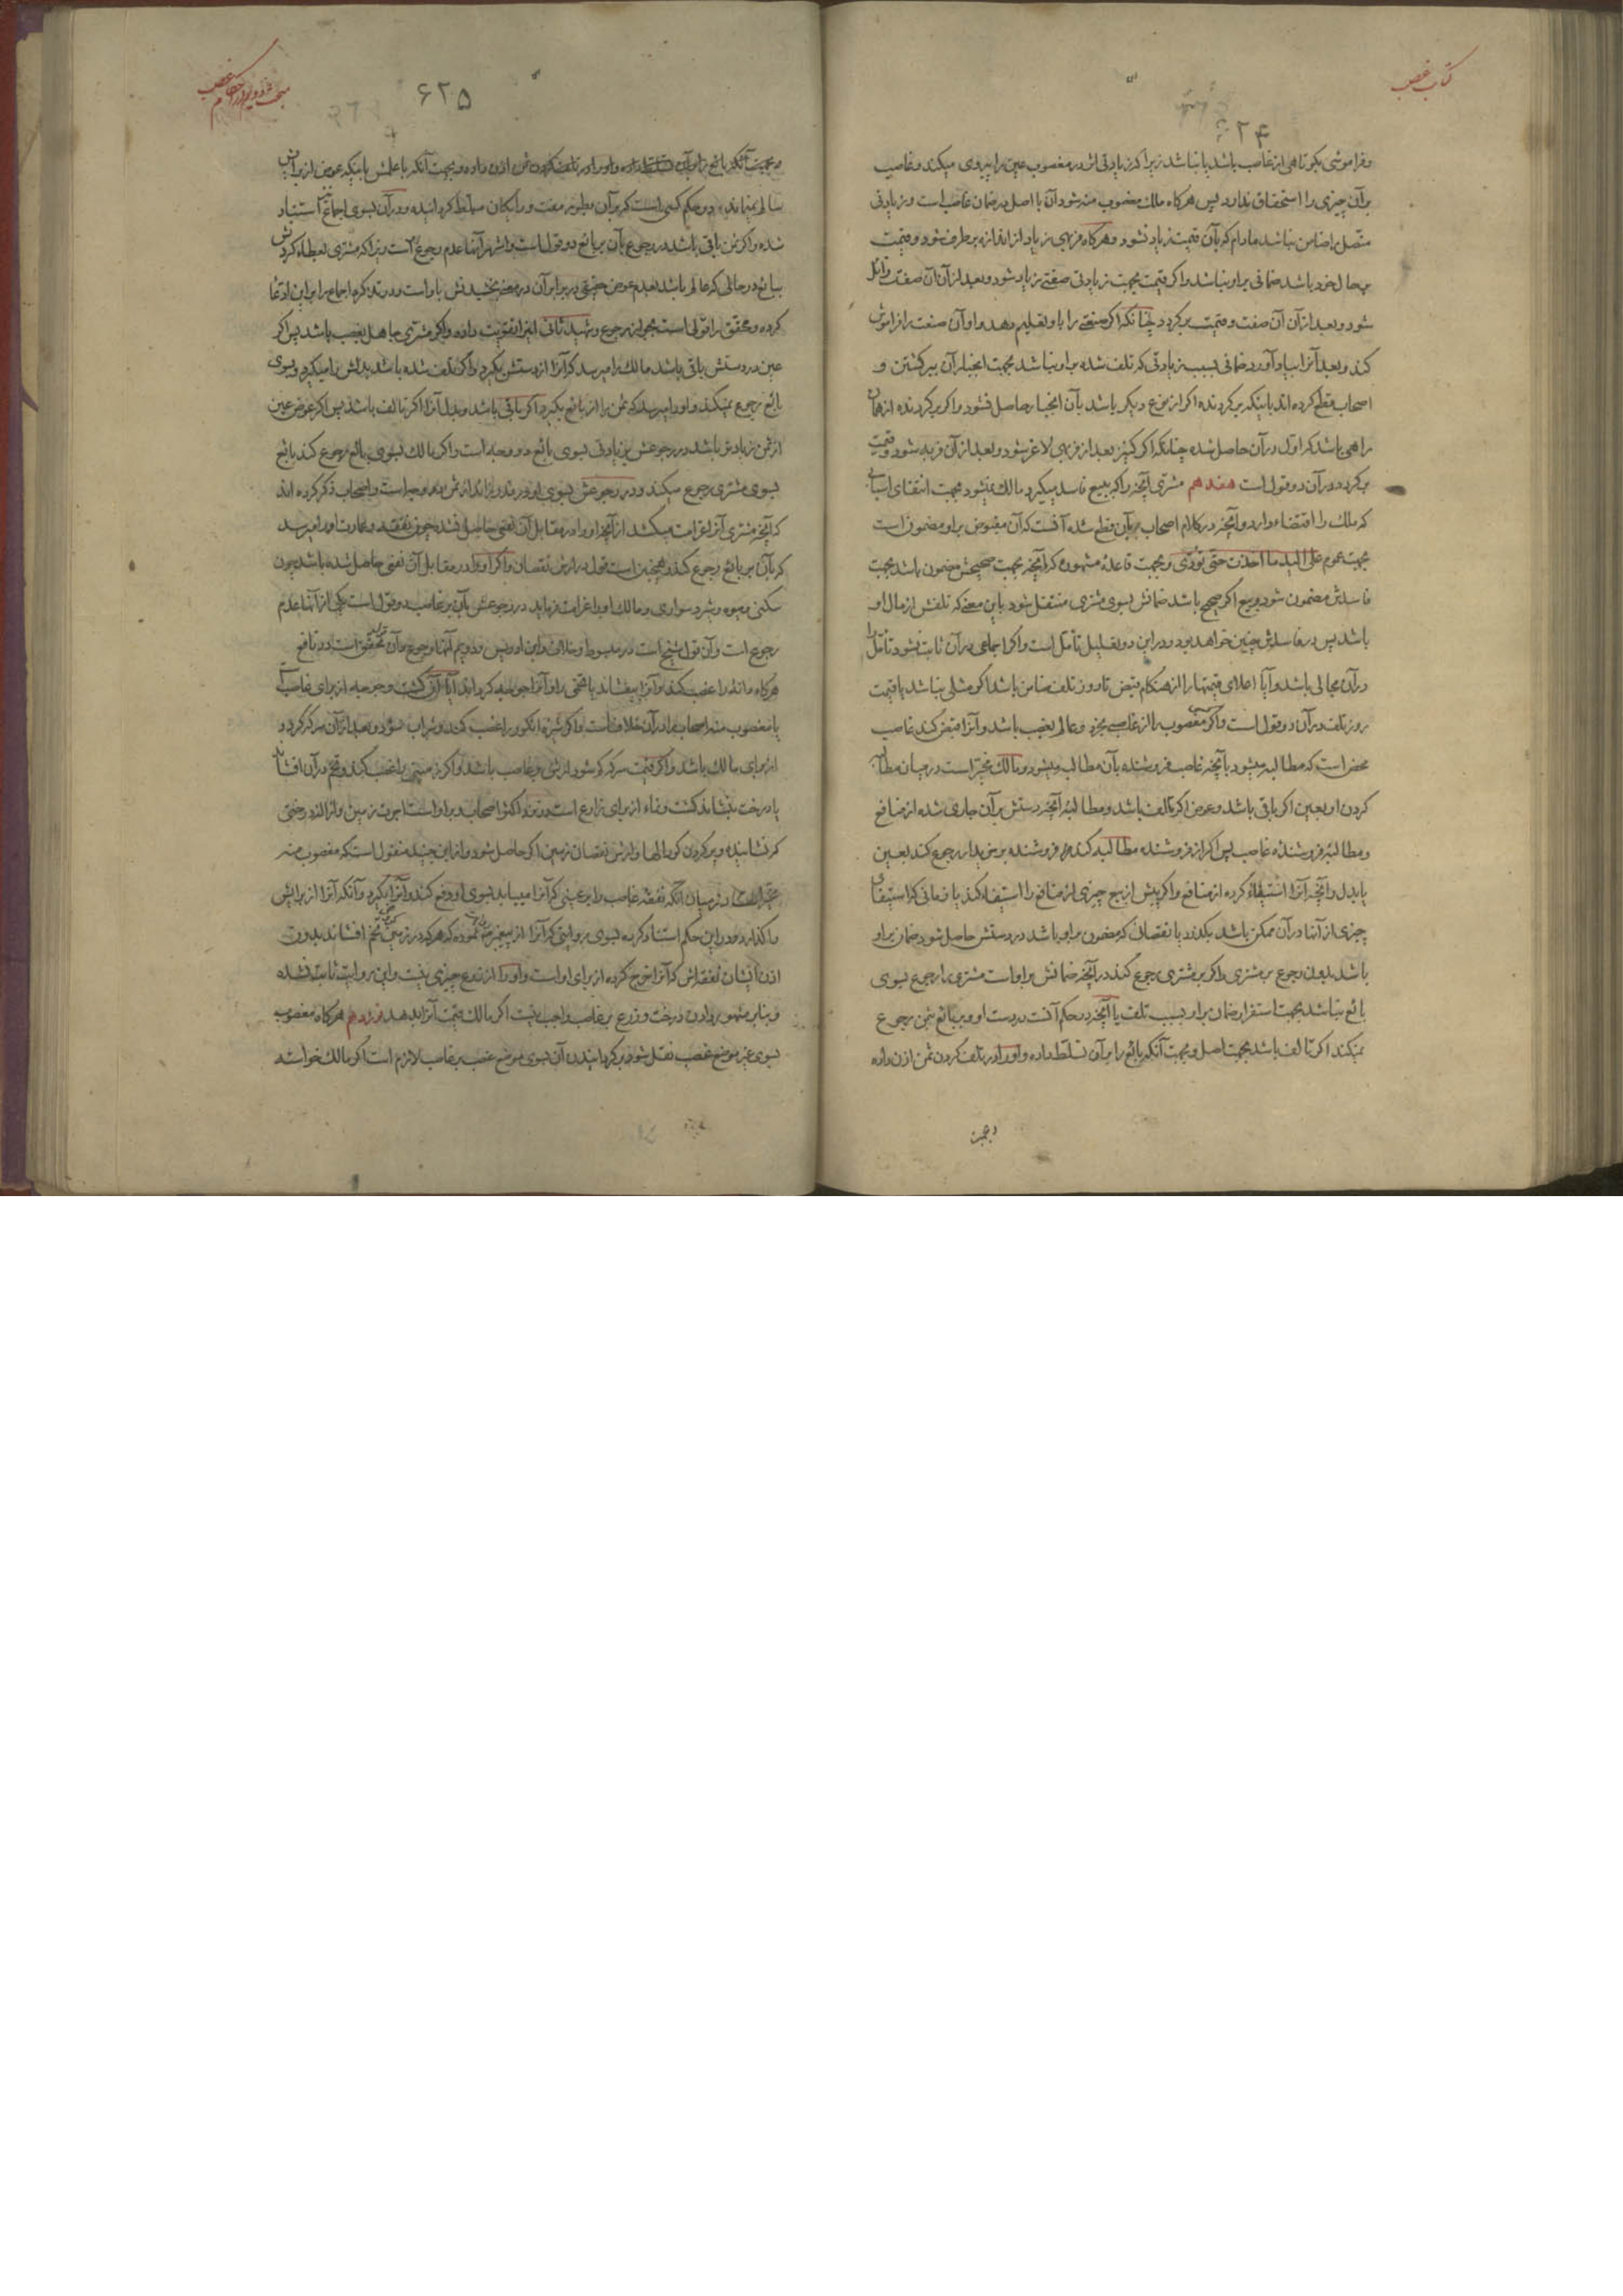 کتاب غصب
۶۲۴
و فراموشی بکوتاهی از غاصب باشد یا نباشد زیرا که زیادتی اثر در مغصوب عین را پیروی میکند و غاصب
بر آن چیزی را استحقاق ندارد پس هرگاه مالک مغصوب منه شود آن با اصل در ضمان غاصب است و زیادتی
متصل را ضامن نباشد مادام که بآن قیمت زیاد نشود و هرگاه فربهی زیاد از اندازه برطرف شود و قیمت
بحال خود باشد ضمانی بر او نباشد و اگر قیمت بجهت زیادتی صفتی زیاد شود و بعد از آن آن صفت زائل
شود و بعد از آن آن صفت و قیمت برگردد چنانکه اگر صنعتی را باو تعلیم دهد و او آن صنعت را فراموش
کند و بعد آنرا بیاد آورد ضمانی بسبب زیادتی که تلف شده بر او نباشد بجهت انجبار آن ببرگشتن و
اصحاب قطع کرده اند باینکه برگردنده اگر از نوع دیگر باشد بآن انجبار حاصل نشود و اگر برگردنده از همان
راهی باشد که اول در آن حاصل شده چنانکه اگر کنیز بعد از فربهی لاغر شود و بعد از آن فربه شود و قیمت
برگردد در آن دو قول است هفدهم مشتری آنچه را که ببیع فاسد میگیرد مالک نمیشود بجهت انتفای اسبابی
که ملک را اقتضاء دارد و آنچه در کلام اصحاب بر آن قطع شده آنست که آن مقبوض بر او مضمون است
بجهت عموم علی الید ما اخذت حتی تؤدی و بجهت قاعدهٔ مشهوره که آنچه بجهت صحیحش مضمون باشد بجهت
فاسدش مضمون شود و بیع اگر صحیح باشد ضمانش بسوی مشتری منتقل شود باین معنی که تلفش از مال او
باشد پس در فاسدش چنین خواهد بود و در این دو تعلیل تأمل است و اگر اجماعی در آن ثابت نشود تأمل را
در آن مجالی باشد و آیا اعلای قیمتها را از هنگام قبض تا روز تلف ضامن باشد اگر مثلی نباشد یا قیمت
روز تلف در آن دو قول است و اگر کسی مغصوب را از غاصب بخرد و عالم بغصب باشد و آنرا قبض کند غاصب
محض است که مطالبه میشود بآنچه غاصب فروشنده بآن مطالب میشود و مالک مخیر است در میان مطالبه
کردن او بعین اگر باقی باشد و عوض اگر تالف باشد و مطالبهٔ آنچه دستش بر آن جاری شده از منافع
و مطالبهٔ فروشندهٔ غاصب پس اگر از فروشنده مطالبه کند فروشنده بر خریدار رجوع کند بعین
یا بدل و آنچه آنرا استیفاء کرده از منافع و اگر پیش از بیع چیزی از منافع را استیفاء کند یا زمانی که استیفای
چیزی از آنها در آن ممکن باشد بگذرد یا نقصان که مضمون بر او باشد در دستش حاصل شود ضمان بر او
باشد بدون رجوع بر مشتری و اگر بر مشتری رجوع کند در آنچه ضمانش بر او است مشتری را رجوع بسوی
بائع نباشد بجهت استقرار ضمان بر او بسبب تلف یا آنچه در حکم آنست در دست او و بر بائع بثمن رجوع
نمیکند اگر تالف باشد بجهت اصل و بجهت آنکه بائع را بر آن تسلط داده و او را در تلف کردن ثمن اذن داده
و بجهت
۶۲۵
و بجهت آنکه بائع را بر آن تسلط داده و او را در تلف کردن ثمن اذن داده و بجهت آنکه با علمش باینکه عوض از برایش
سالم نمیماند در حکم کسی است که بر آن بطور مفت و رایگان مسلط گردانیده و در آن بسوی اجماع نیز استناد
شده و اگر ثمن باقی باشد در رجوع بآن بر بائع دو قول است و اشهر آنها عدم رجوع است زیرا که مشتری بعطاء کردنش
ببائع در حالی که عالم باشد بعدم عوض حقیقی در برابر آن در معنی بخشیدنش باو است و در تذکره اجماع را بر این ادعا
کرده و محقق را قولی است بجواز رجوع و شهید ثانی اینرا تقویت داده و اگر مشتری جاهل بغصب باشد پس اگر
عین در دستش باقی باشد مالک را میرسد که آنرا از دستش بگیرد و اگر تلف شده باشد بدلش را میگیرد و بسوی
بائع رجوع نمیکند و او را میرسد که ثمن را از بائع بگیرد اگر باقی باشد و بدل آنرا اگر تالف باشد پس اگر عوض عین
از ثمن زیادتر باشد در رجوعش بزیادتی بسوی بائع دو وجه است و اگر مالک بسوی بائع رجوع کند بائع
بسوی مشتری رجوع میکند و در رجوعش بسوی او در قدر زائد از ثمن دو وجه است و اصحاب ذکر کرده اند
که آنچه مشتری آنرا غرامت میکشد از آنچه او را در مقابل آن نفعی حاصل نشده چون نفقه و عمارت او را میرسد
که بآن بر بائع رجوع کند و همچنین است قول در ارش نقصان و اگر او را در مقابل آن نفعی حاصل شده باشد چون
سکنی و میوه و شیر و سواری و مالک او را غرامت فرماید در رجوعش بآن بر غاصب دو قول است یکی از آنها عدم
رجوع است و آن قول شیخ است در مبسوط و خلاف و ابن ادریس و دویم آنها رجوع و آن قول محقق است در نافع
هرگاه دانه را غصب کند و آنرا بیفشاند یا تخمی را و آنرا جوجه گرداند آیا آن کشت و جوجه از برای غاصب است
یا مغصوب منه اصحاب را در آن خلاف است و اگر شیره انگور را غصب کند و شراب شود و بعد از آن سرکه گردد
از برای مالک باشد و اگر قیمت سرکه کم شود ارش بر غاصب باشد و اگر زمینی را غصب کند و تخم در آن افشاند
یا درخت بنشاند کشت و نماء از برای زارع است در نزد اکثر اصحاب و بر او است اجرت زمین و ازاله درختی
که نشانیده و پر کردن گودالها و ارش نقصان زمین اگر حاصل شود و از ابن جنید منقول است که مغصوب منه
مخیر است در میان آنکه نفقه غاصب را بر عینی که آنرا میباید بسوی او دفع کند و آنرا بگیرد و آنکه آنرا از برایش
واگذارد و در این حکم استناد کرده بسوی روایتی که آنرا از پیغمبر روایت نموده که هر که در زمین کسی تخم افشاند بدون
اذن ایشان نفقه اش که آنرا خرج کرده از برای او است و او را از زرع چیزی نیست و این روایت ثابت نشده
و بنا بر مشهور بر دادن درخت و زرع بر غاصب واجب نیست اگر مالک قیمت آنرا بدهد نوزدهم هرگاه مغصوب
بسوی غیر موضع غصب نقل شود برگردانیدن آن بسوی موضع غصب بر غاصب لازم است اگر مالک خواسته